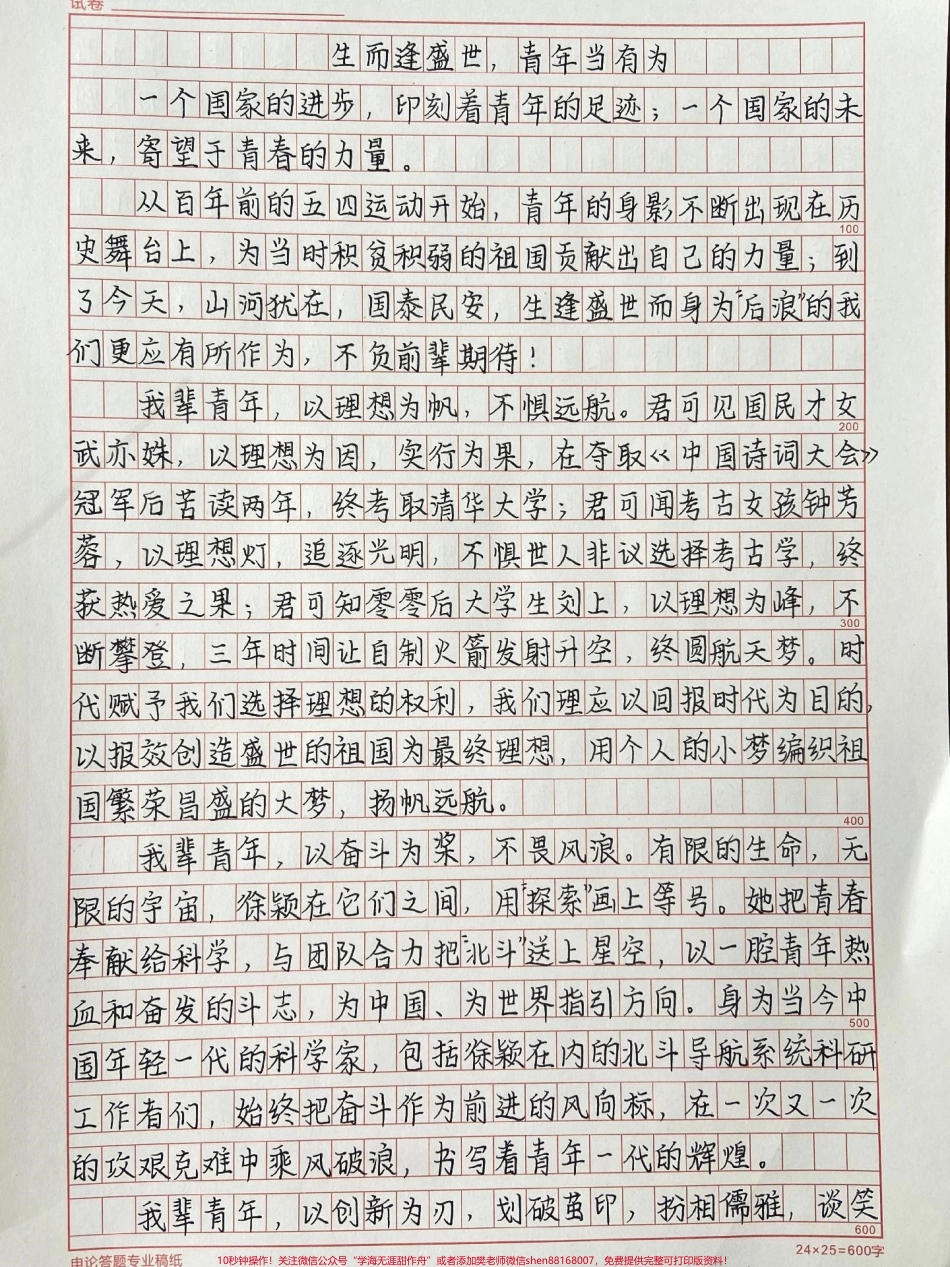 试卷
生而逢盛世，青年当有为
一个国家的进步，印刻着青年的足迹；一个国家的未
来，寄望于青春的力量。
从百年前的五四运动开始，青年的身影不断出现在历
100
史舞台上，为当时积贫积弱的祖国贡献出自己的力量；到
了今天，山河犹在，国泰民安，生逢盛世而身为“后浪”的我
们更应有所作为，不负前辈期待！
我辈青年，以理想为帆，不惧远航。君可见国民才女
200
武亦姝，以理想为因，实行为果，在夺取《中国诗词大会》
冠军后苦读两年，终考取清华大学；君可闻考古女孩钟芳
蓉，以理想灯，追逐光明，不惧世人非议选择考古学，终
获热爱之果；君可知零零后大学生刘上，以理想为峰，不
300
断攀登，三年时间让自制火箭发射升空，终圆航天梦。时
代赋予我们选择理想的权利，我们理应以回报时代为目的，
以报效创造盛世的祖国为最终理想，用个人的小梦编织祖
国繁荣昌盛的大梦，扬帆远航。
400
我辈青年，以奋斗为桨，不畏风浪。有限的生命，无
限的宇宙，徐颖在它们之间，用“探索”画上等号。她把青春
奉献给科学，与团队合力把“北斗”送上星空，以一腔青年热
血和奋发的斗志，为中国、为世界指引方向。身为当今中
500
国年轻一代的科学家，包括徐颖在内的北斗导航系统科研
工作者们，始终把奋斗作为前进的风向标，在一次又一次
的攻艰克难中乘风破浪，书写着青年一代的辉煌。
我辈青年，以创新为刃，划破茧印，扮相儒雅，谈笑
600
申论答题专业稿纸
10秒钟操作！关注微信公众号“学海无涯甜作舟”或者添加樊老师微信shen88168007，免费提供完整可打印版资料！
24×25=600字